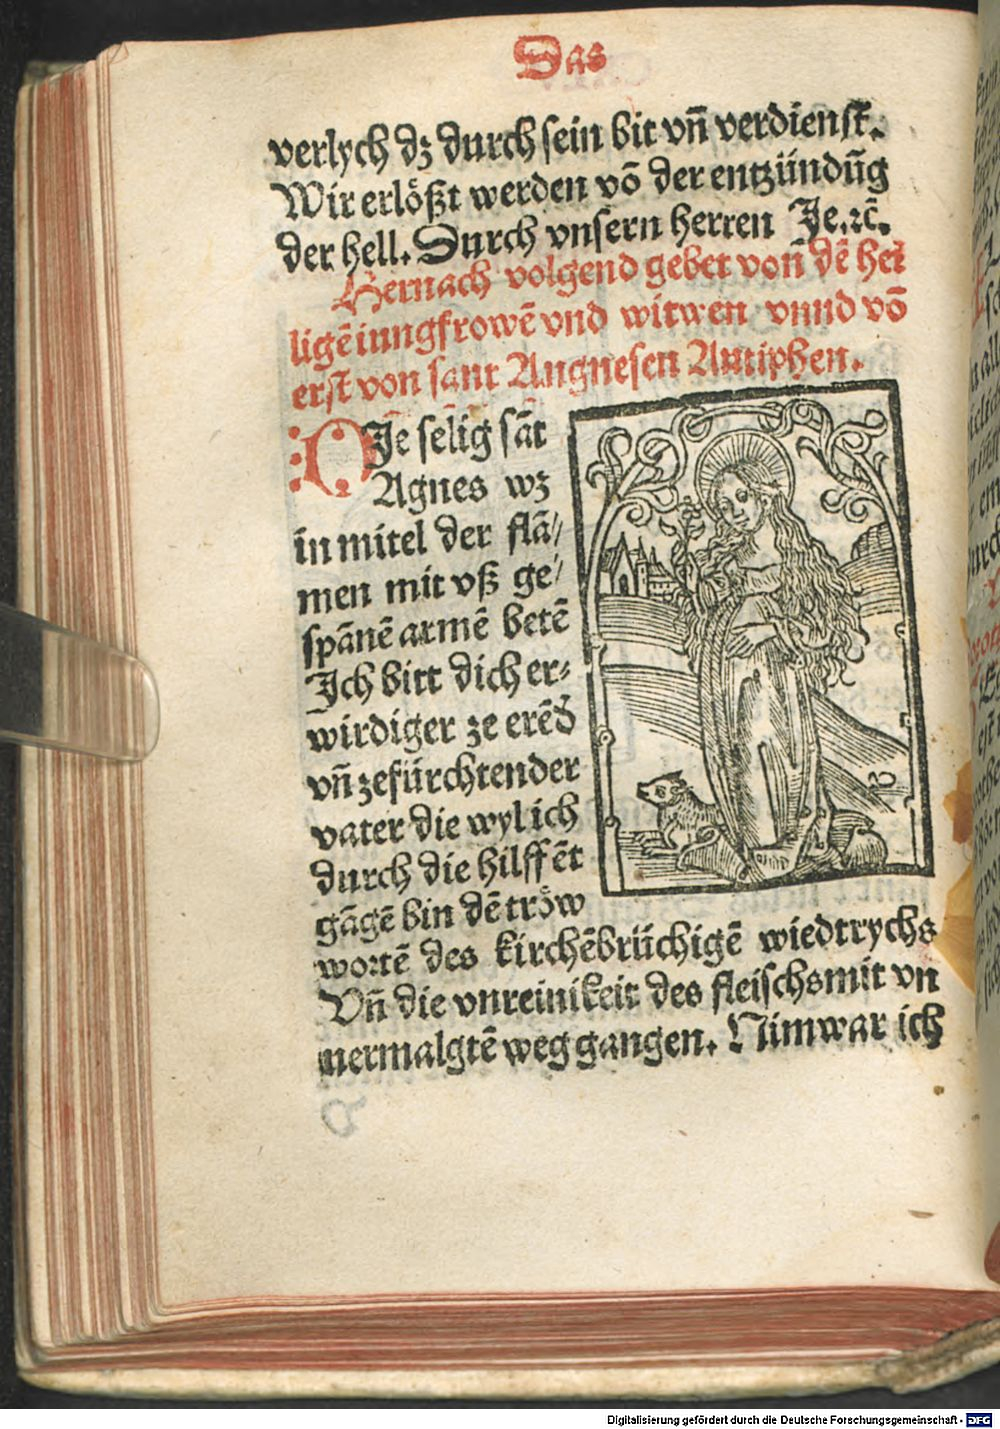 Das
verlych dz durch sein bit vn̄ verdienst.
Wir erlößt werden vō der entzündūg
der hell. Durch vnsern herren Je.ꝛc̄.
Hernach volgend gebet von dē hei
ligē iungfrowē vnd witwen vnnd vō
erst von sant Angnesen Antiphen.
DJe selig sāt
Agnes wz
in mitel der flā⸗
men mit vß ge⸗
spānē armē betē
Jch bitt dich er⸗
wirdiger ze erēd
vn̄ zefürchtender
vater die wyl ich
durch die hilff ēt
gāgē bin dē tröw
wortē des kirchēbrüchigē wiedtrychs
Vn̄ die vnreinikeit des fleischs mit vn
uermalgtē weg gangen. Nim war ich
Digitalisierung gefördert durch die Deutsche Forschungsgemeinschaft - DFG